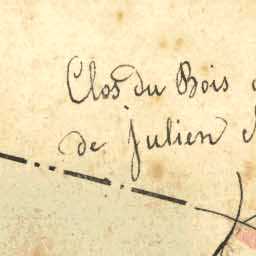 Clos du Bois
de Julien